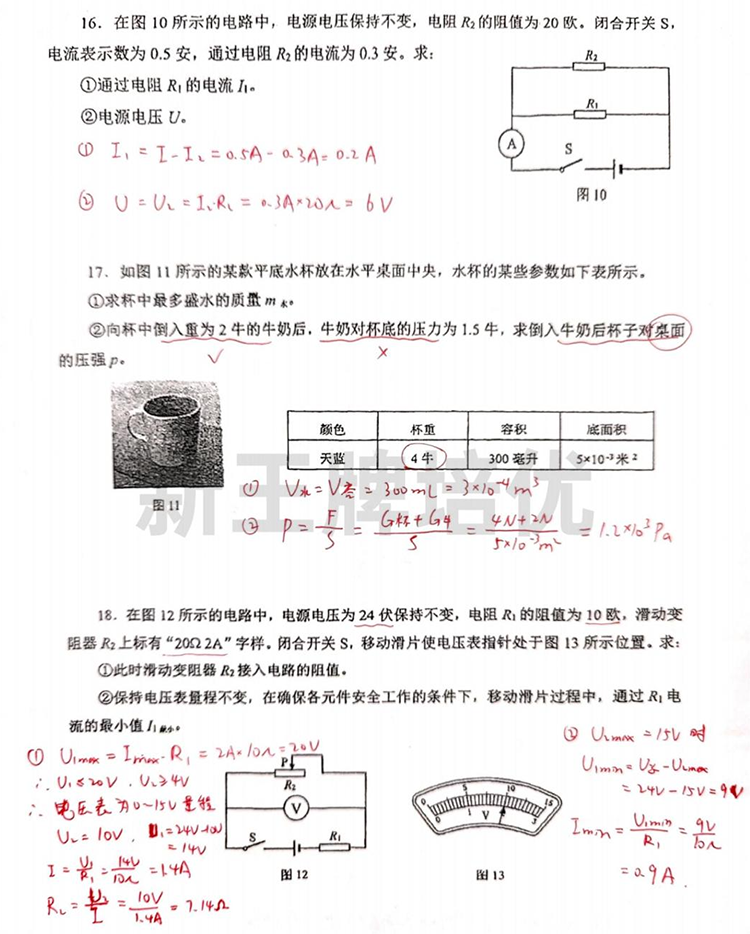 16. 在图 10 所示的电路中，电源电压保持不变，电阻 R₂的阻值为 20 欧。闭合开关 S，
电流表示数为 0.5 安，通过电阻 R₂的电流为 0.3 安。求：
①通过电阻 R₁的电流 I₁。
②电源电压 U。
① I₁ = I-I₂ = 0.5A-0.3A=0.2A
② U = U₂ = I₂·R₂ = 0.3A×20Ω = 6V
R₂
R₁
A
S
图 10
17. 如图 11 所示的某款平底水杯放在水平桌面中央，水杯的某些参数如下表所示。
①求杯中最多盛水的质量 m 水。
②向杯中倒入重为 2 牛的牛奶后，牛奶对杯底的压力为 1.5 牛，求倒入牛奶后杯子对桌面
的压强 p。
图 11
颜色 杯重 容积 底面积
天蓝 4 牛 300 毫升 5×10⁻³米²
新王牌培优
① V水 = V容 = 300mL = 3×10⁻⁴m³
② P = F/S = (G杯+G牛)/S = (4N+2N)/(5×10⁻³m²) = 1.2×10³Pa
18. 在图 12 所示的电路中，电源电压为 24 伏保持不变，电阻 R₁的阻值为 10 欧，滑动变
阻器 R₂上标有“20Ω 2A”字样。闭合开关 S，移动滑片使电压表指针处于图 13 所示位置。求：
①此时滑动变阻器 R₂接入电路的阻值。
②保持电压表量程不变，在确保各元件安全工作的条件下，移动滑片过程中，通过 R₁电
流的最小值 I₁最小。
① U₁max = Imax·R₁ = 2A×10Ω=20V
∴ U₁≤20V，U₂≥4V
∴ 电压表为0~15V量程
U₂=10V，U₁=24V-10V
=14V
I = U₁/R₁ = 14V/10Ω = 1.4A
R₂ = U₂/I = 10V/1.4A = 7.14Ω
P
R₂
V
S
R₁
图 12
0 5 10 15
0 1 V 3
图 13
② U₂max = 15V 时
U₁min = U总-U₂max
= 24V-15V=9V
Imin = U₁min/R₁ = 9V/10Ω
=0.9A.